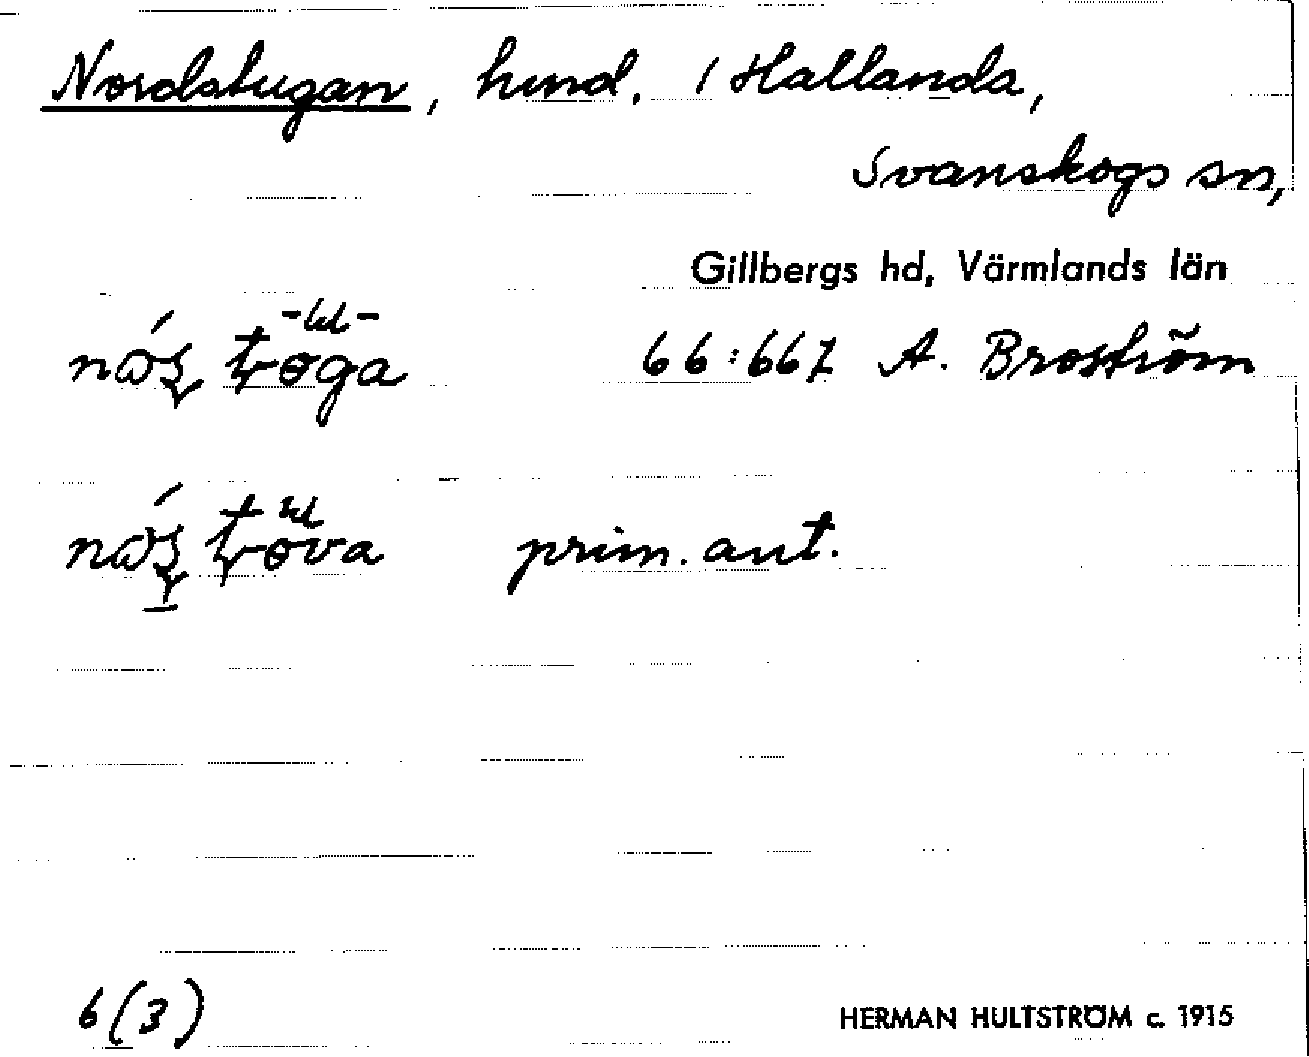 Nordstugan, hmd. i Hallanda,
Svanskogs sn,
Gillbergs hd, Värmlands län
66:667 A. Broström
prim. ant.
6(3)
HERMAN HULTSTRÖM c. 1915